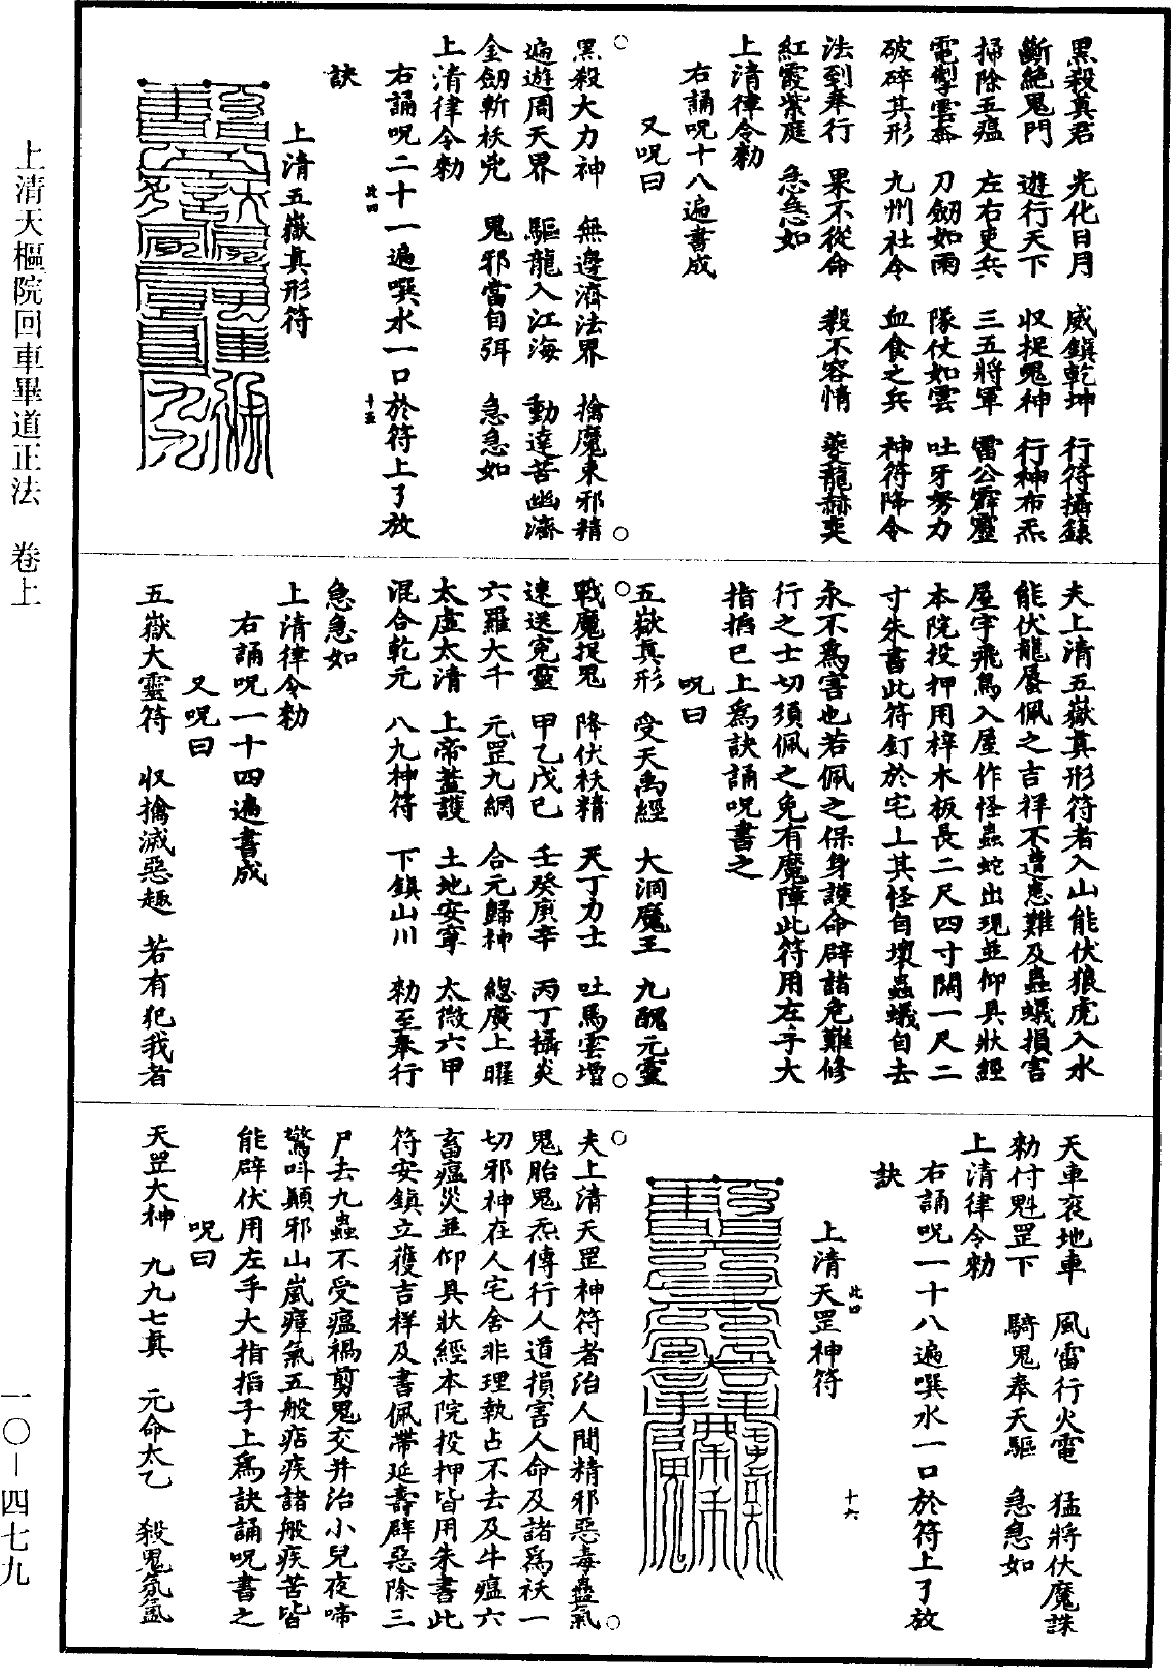 黑殺真君　光化日月　威鎮乾坤　行符攝籙
斷絕鬼門　遊行天下　収捉鬼神　行神布炁
掃除五瘟　左右吏兵　三五將軍　雷公霹靂
電掣雲奔　刀劒如雨　隊仗如雲　吐牙努力
破碎其形　九州社令　血食之兵　神符降令
法到奉行　果不從命　殺不容情　夔龍赫奕
紅霞紫庭　急急如
上清律令勑
右誦呪十八遍書成
又呪曰
黑殺大力神　無邊濟法界　擒魔束邪精
遍遊周天界　驅龍入江海　動達苦幽濟
金劒斬妖兇　鬼邪當自弭　急急如
上清律令勑
右誦呪二十一遍噀水一口於符上了放
訣
此四　十五
上清五嶽真形符
夫上清五嶽真形符者入山能伏狼虎入水
能伏龍蜃佩之吉祥不遭患難及蟲蟻損害
屋宇飛鳥入屋作怪蟲蛇出現並仰具狀經
本院投押用梓木板長二尺四寸闊一尺二
寸朱書此符釘於宅上其怪自壞蟲蟻自去
永不為害也若佩之保身護命辟諸危難修
行之士切須佩之免有魔障此符用左手大
指掐巳上為訣誦呪書之
呪曰
五嶽真形　受天禹經　大洞魔王　九醜元靈
戰魔捉鬼　降伏妖精　天丁力士　吐馬雲增
速送寃靈　甲乙戊巳　壬癸庚辛　丙丁攝炎
六羅大千　元罡九網　合元歸神　總廣上曜
太虛太清　上帝蓋護　土地安寧　太微六甲
混合乾元　八九神符　下鎮山川　勑至奉行
急急如
上清律令勑
右誦呪一十四遍書成
又呪曰
五嶽大靈符　収擒滅惡趣　若有犯我者
天車衮地車　風雷行火電　猛將伏魔誅
勑付魁罡下　騎鬼奉天驅　急急如
上清律令勑
右誦呪一十八遍噀水一口於符上了放
訣
此四　十六
上清天罡神符
夫上清天罡神符者治人間精邪惡毒蠱氣
鬼胎鬼炁傳行人道損害人命及諸為祅一
切邪神在人宅舍非理執占不去及牛瘟六
畜瘟災並仰具狀經本院投押皆用朱書此
符安鎮立獲吉祥及書佩帶延壽辟惡除三
尸去九蟲不受瘟禍剪鬼交并治小兒夜啼
驚呌顛邪山嵐瘴氣五般痁疾諸般疾苦皆
能辟伏用左手大指掐子上為訣誦呪書之
呪曰
天罡大神　九九七真　元命太乙　殺鬼氛氳
上清天樞院回車畢道正法　卷上
一〇—四七九